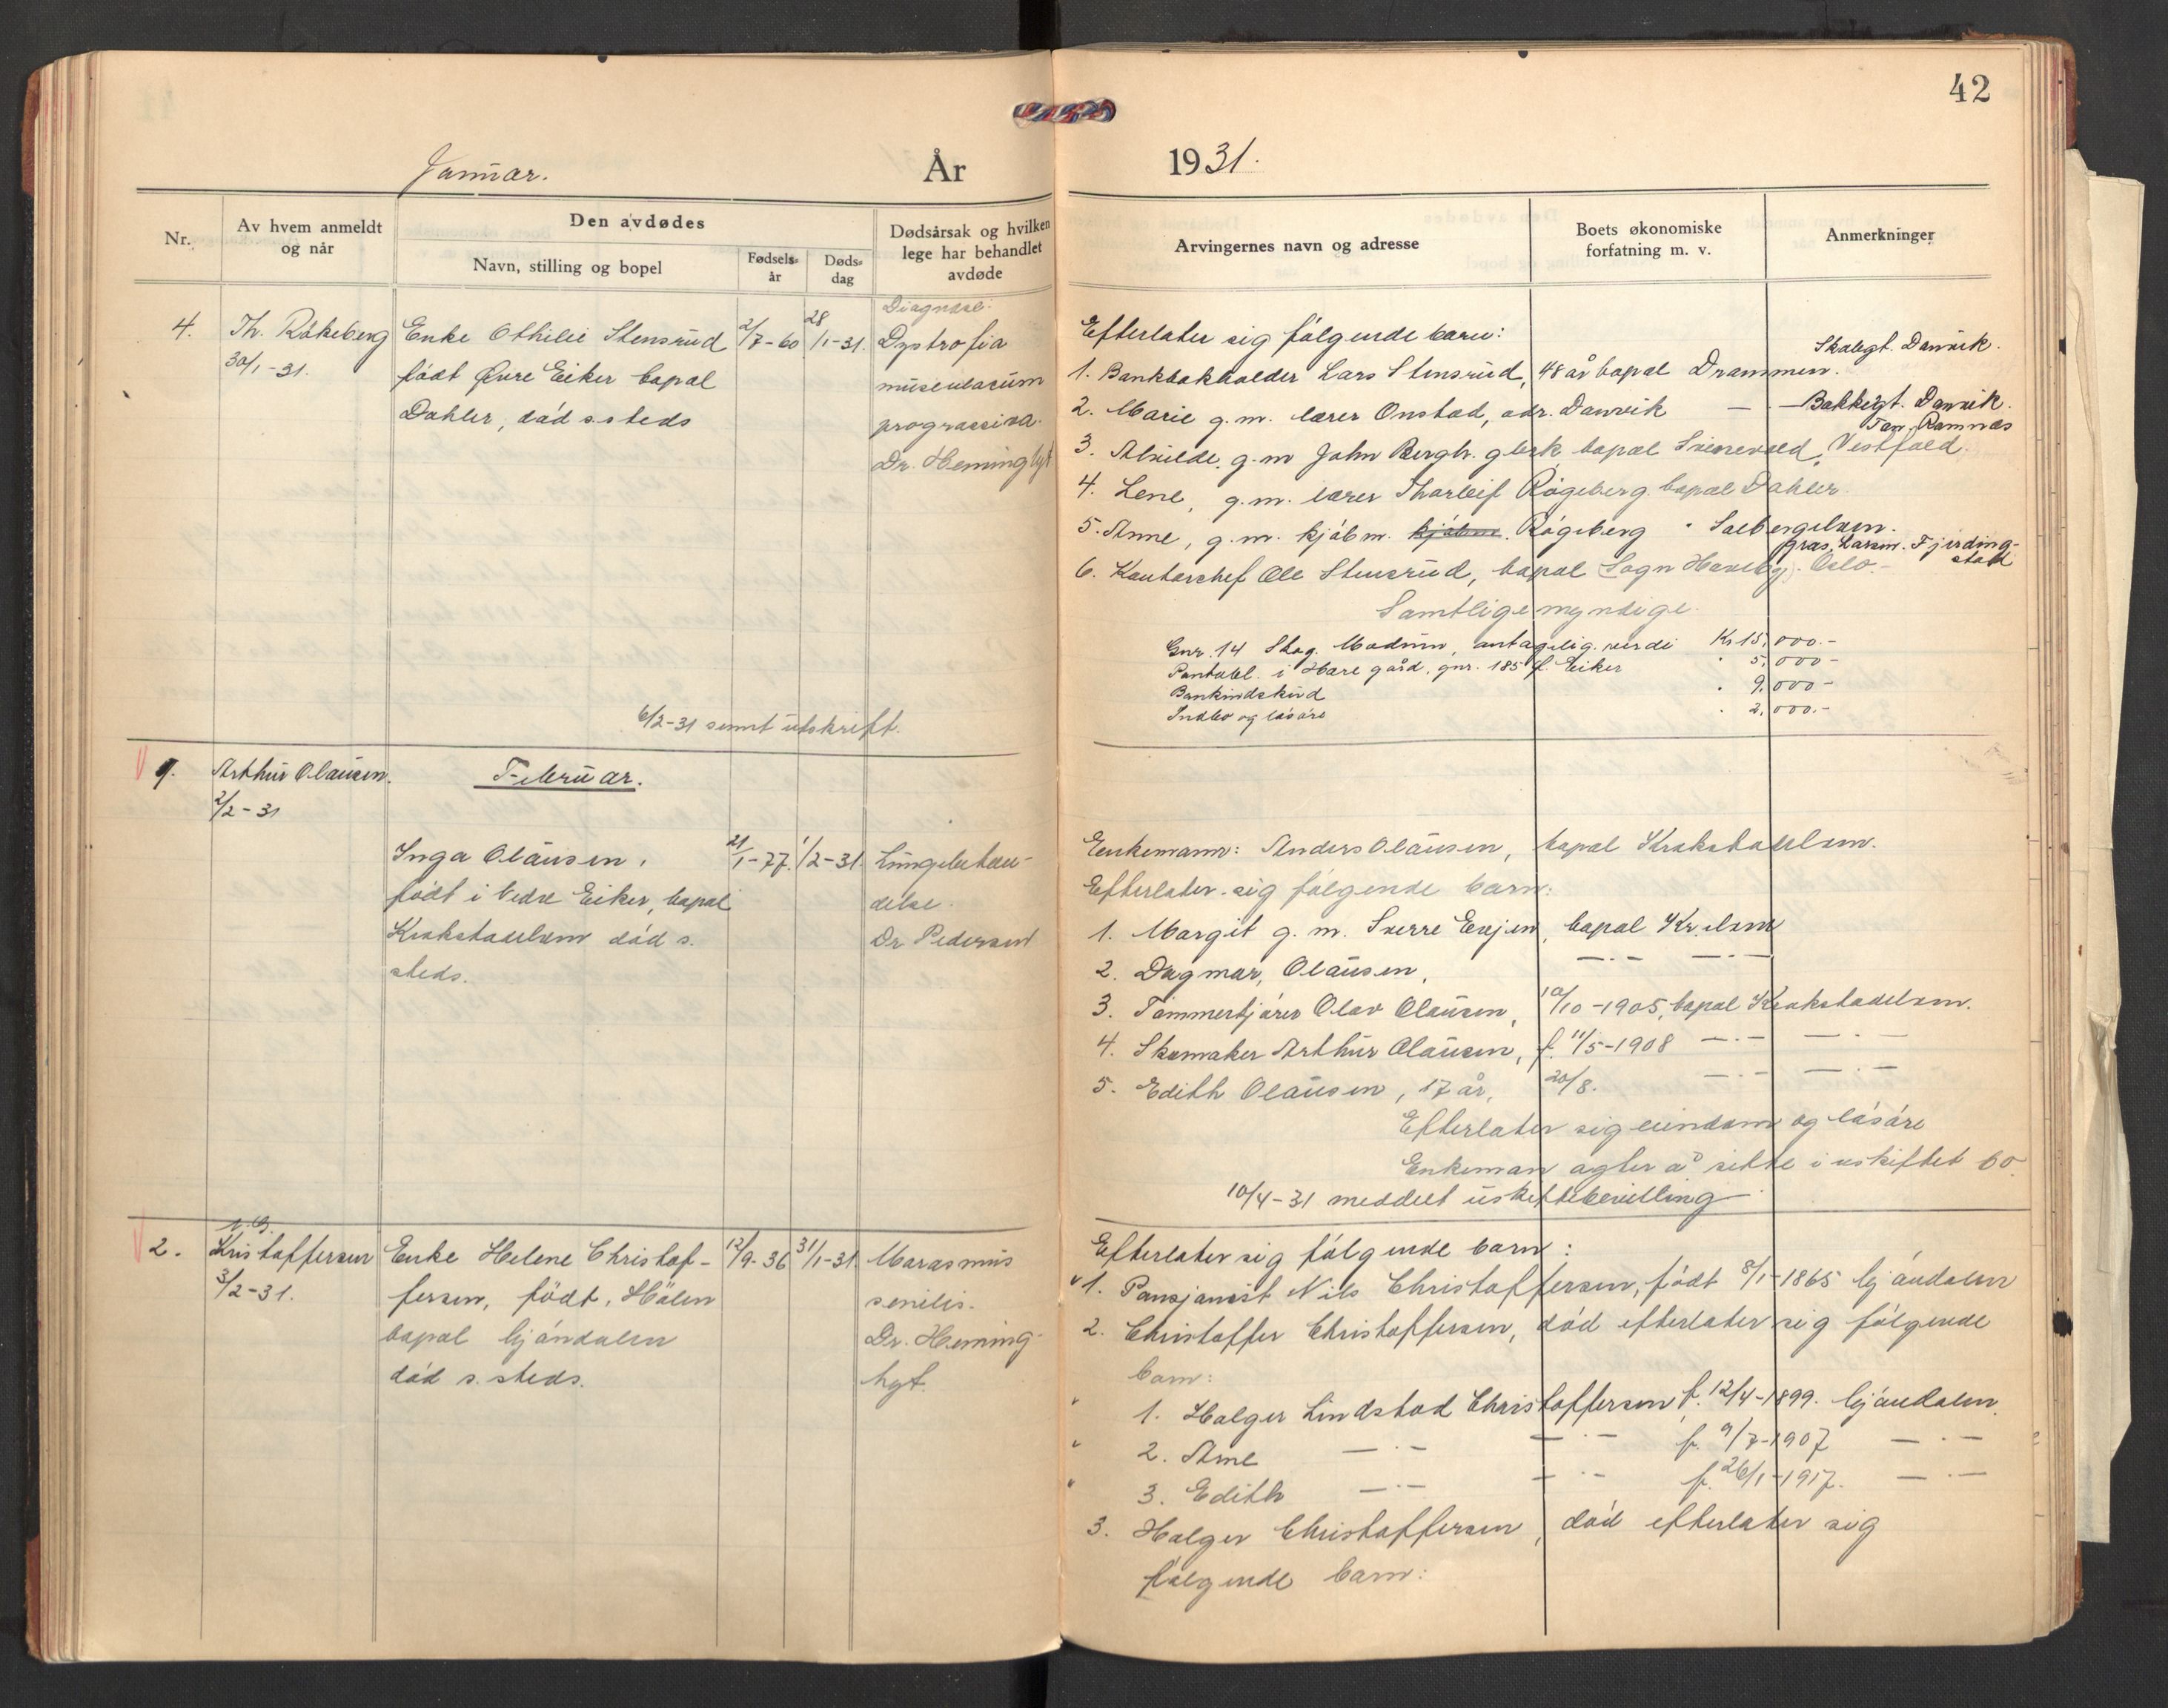 42
Januar.
År
1931.
Nr.
Av hvem anmeldt
og når
Den avdødes
Navn, stilling og bopel
Fødsels-
år
Døds-
dag
Dødsårsak og hvilken
lege har behandlet
avdøde
Arvingernes navn og adresse
Boets økonomiske
forfatning m. v.
Anmerkninger
4.
Th. Råkeberg
30/1-31.
Enke Othilie Stensrud
født Øvre Eiker bopal
Dahler, død s.steds
2/7-60
28/1-31.
Diagnose:
Dystrofia
musculacum
prograssiva.
Dr. Heminghyt
Efterlater sig følgende barn:
1. Bankbokholder Lars Stensrud, 48 år bopal Drammen. Skolegt. Danvik.
2. Marie g.m. lærer Onstad, adr. Danvik — · — Bakkegt. Danvik.
3. Alvilde, g.m John Bergh. bopal Svenevold, Vestfold. Ramnæs
4. Lene, g.m. lærer Thorleif Rógeberg bopal Dahler.
5. Anne, g.m. kjøbm. kjøbm. Rógeberg " Solbergelven.
6. Kontorchef Ole Stensrud, bopal (Sogn Haveby) Oslo.-
Fjerding-
stad
Samtlige myndige.
Gnr. 14 Skog. Modum, antagelig. verdi Kr 15,000.-
Pantobl. i Hare gård, gnr. 185 Eiker " 5,000-
Bankindskud " 9,000-
Indbo og løsøre " 2,000.-
6/2-31 sennt utskrift.
1.
Arthur Olausen.
2/2-31
Februar.
Inga Olausen,
født i Nedre Eiker, bopal
Krokstadelven død s.
steds.
21/1-77.
1/2-31
Lungebeten-
delse.
Dr Pedersen
Enkemann: Anders Olausen, bopal Krokstadelven.
Efterlater sig følgende barn:
1. Margit g. m. Sverre Evjen, bopal Kr.elven
2. Dagmar, Olausen, — · — — · —
3. Tømmerkjører Olav Olausen, 10/10-1905, bopal Krokstadelven.
4. Skomaker Arthur Olausen, f. 11/5-1908 — · — — · —
5. Edith Olausen, 17 år, 20/8. — · — — · —
Efterlater sig eiendom og løsøre
Enkeman agter å sitte i uskiftet bo.
10/4-31 meddelt uskiftebevilling
2.
Kristoffersen
3/2-31.
Enke Helene Christof-
fersen, født, Hölen
bopal Gjøndalen
død s. steds.
12/9-36
31/1-31.
Marasmus
senilis.
Dr. Heming-
hyt.
Efterlater sig følgende barn:
1. Pansjonist Nils Christoffersen, født 8/1-1865 Gjøndalen
2. Christoffer Christoffersen, død efterlater sig følgende
barn:
1. Holger Lindstad Christoffersen, f. 12/4-1899. Gjøndalen.
2. Arne — · — — · — f. 9/7-1907 — · —
3. Edith — · — — · — f. 26/1-1917. — · —
3. Holger Christoffersen, død efterlater sig
følgende barn: